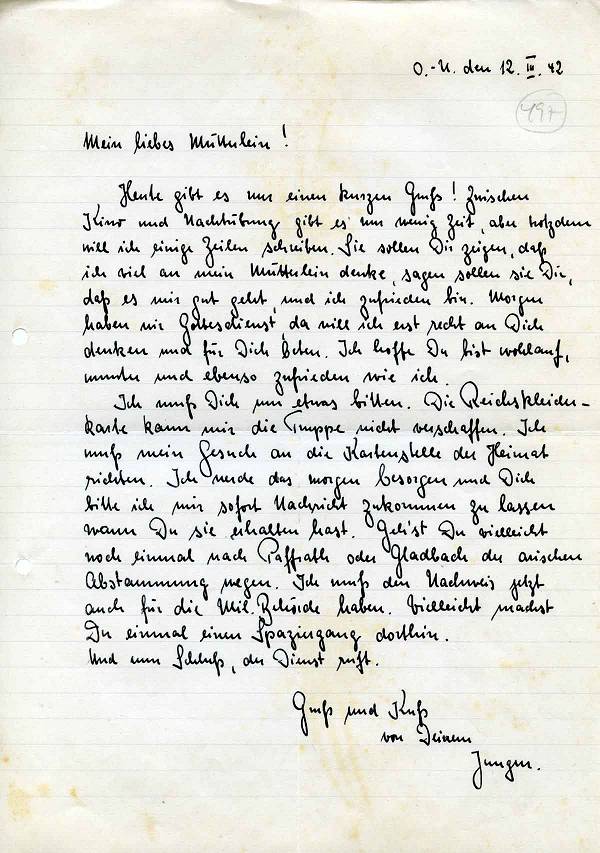 O.-U. den 12. IV. 42
497
Mein liebes Mütterlein!
Heute gibt es nur einen kurzen Gruß! Zwischen
Kino und Nachtübung gibt es nur wenig Zeit, aber trotzdem
will ich einige Zeilen schreiben. Sie sollen Dir zeigen, daß
ich viel an mein Mütterlein denke, sagen sollen sie Dir,
daß es mir gut geht, und ich zufrieden bin. Morgen
haben wir Gottesdienst, da will ich erst recht an Dich
denken und für Dich beten. Ich hoffe Du bist wohlauf,
munter und ebenso zufrieden wie ich.
Ich muß Dich um etwas bitten. Die Reichskleider-
karte kann mir die Truppe nicht verschaffen. Ich
muß mein Gesuch an die Kartenstelle der Heimat
richten. Ich werde das morgen besorgen und Dich
bitte ich mir sofort Nachricht zukommen zu lassen
wann Du sie erhalten hast. Geh'st Du vielleicht
noch einmal nach Paffrath oder Gladbach der arischen
Abstammung wegen. Ich muß den Nachweis jetzt
auch für die Mil. Behörde haben. Vielleicht machst
Du einmal einen Spaziergang dorthin.
Und nun Schluß, der Dienst ruft.
Gruß und Kuß
von Deinem
Jungen.